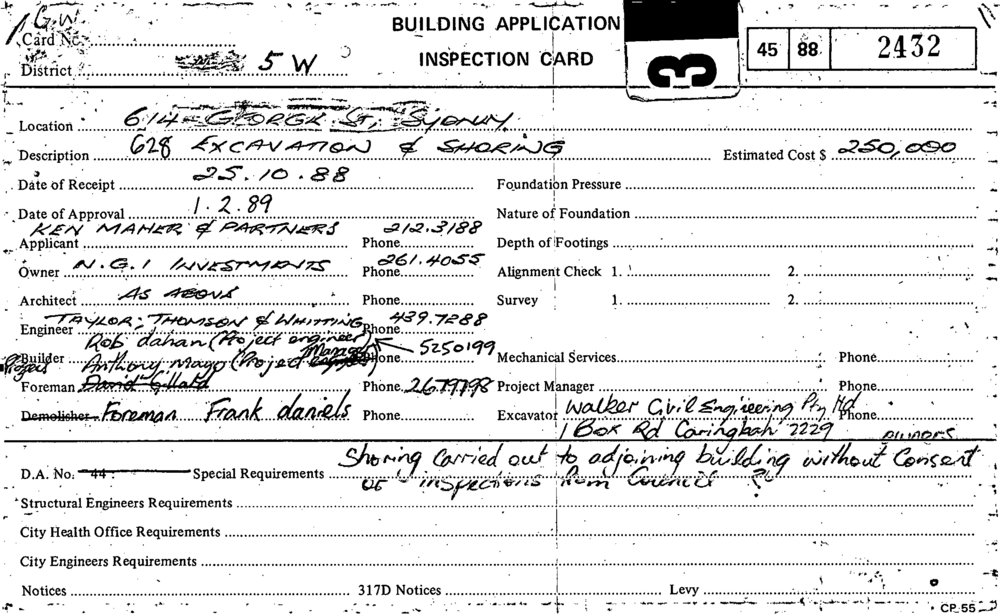 G.W.
BUILDING APPLICATION
Card No.
INSPECTION CARD
3
45 88 2432
District 5 W
Location 614 - GEORGE ST, SYDNEY.
Description 628 EXCAVATION & SHORING Estimated Cost $ 250,000
Date of Receipt 25.10.88 Foundation Pressure
Date of Approval 1.2.89 Nature of Foundation
Applicant KEN MAHER & PARTNERS Phone 212.3188 Depth of Footings
Owner N.G.I INVESTMENTS Phone 261.4055 Alignment Check 1. 2.
Architect AS ABOVE Phone Survey 1. 2.
Engineer TAYLOR; THOMSON & WHITTING Phone 439.7288
Rob dahan (Project engineer) 5250199
Builder Anthony Mayo (Project Manager) Phone Mechanical Services Phone
Foreman David Gillard Phone 2679798 Project Manager Phone
Demolisher Foreman Frank daniels Phone Excavator Walker Civil Engineering Pty Ltd Phone
1 Box Rd Caringbah 2229
D.A. No. 44 Special Requirements Shoring Carried out to adjoining building without Consent
or inspections from Council ?
Structural Engineers Requirements
City Health Office Requirements
City Engineers Requirements
Notices 317D Notices Levy
CP 55